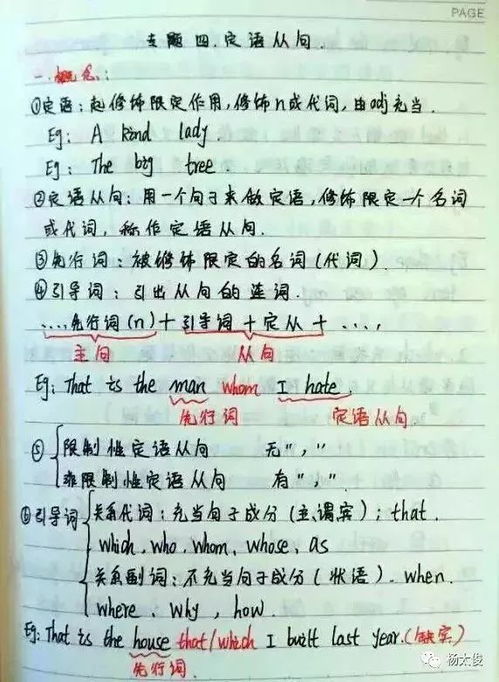 PAGE
专题四.定语从句.
一.概念:
①定语:起修饰限定作用,修饰n或代词,由adj充当.
Eg: A kind lady.
Eg: The big tree.
②定语从句:用一个句子来做定语,修饰限定一个名词
或代词,称作定语从句.
③先行词:被修饰限定的名词(代词).
④引导词:引出从句的连词.
....先行词(n)+引导词+定从+....,
主句 从句
Eg: That is the man whom I hate.
先行词 定语从句.
⑤ 限制性定语从句 无","
非限制性定语从句 有","
⑥引导词 关系代词:充当句子成分(主.谓宾);that.
which、who、whom、whose、as
关系副词:不充当句子成分(状语).when.
where、why,how.
Eg: That is the house that/which I built last year.(缺宾)
先行词.
杨太俊